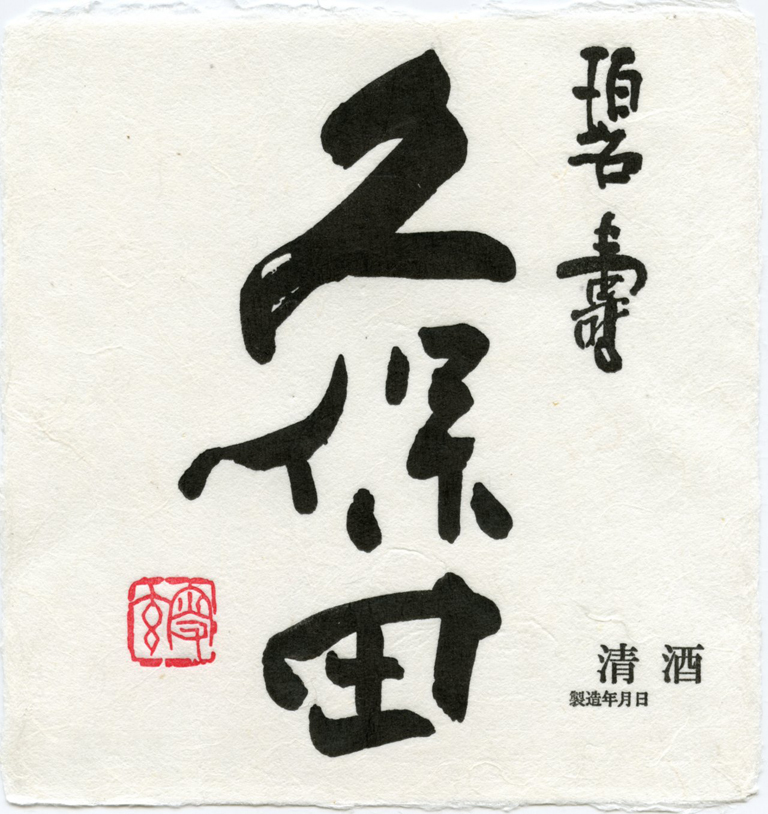 碧寿
久保田
清酒
製造年月日